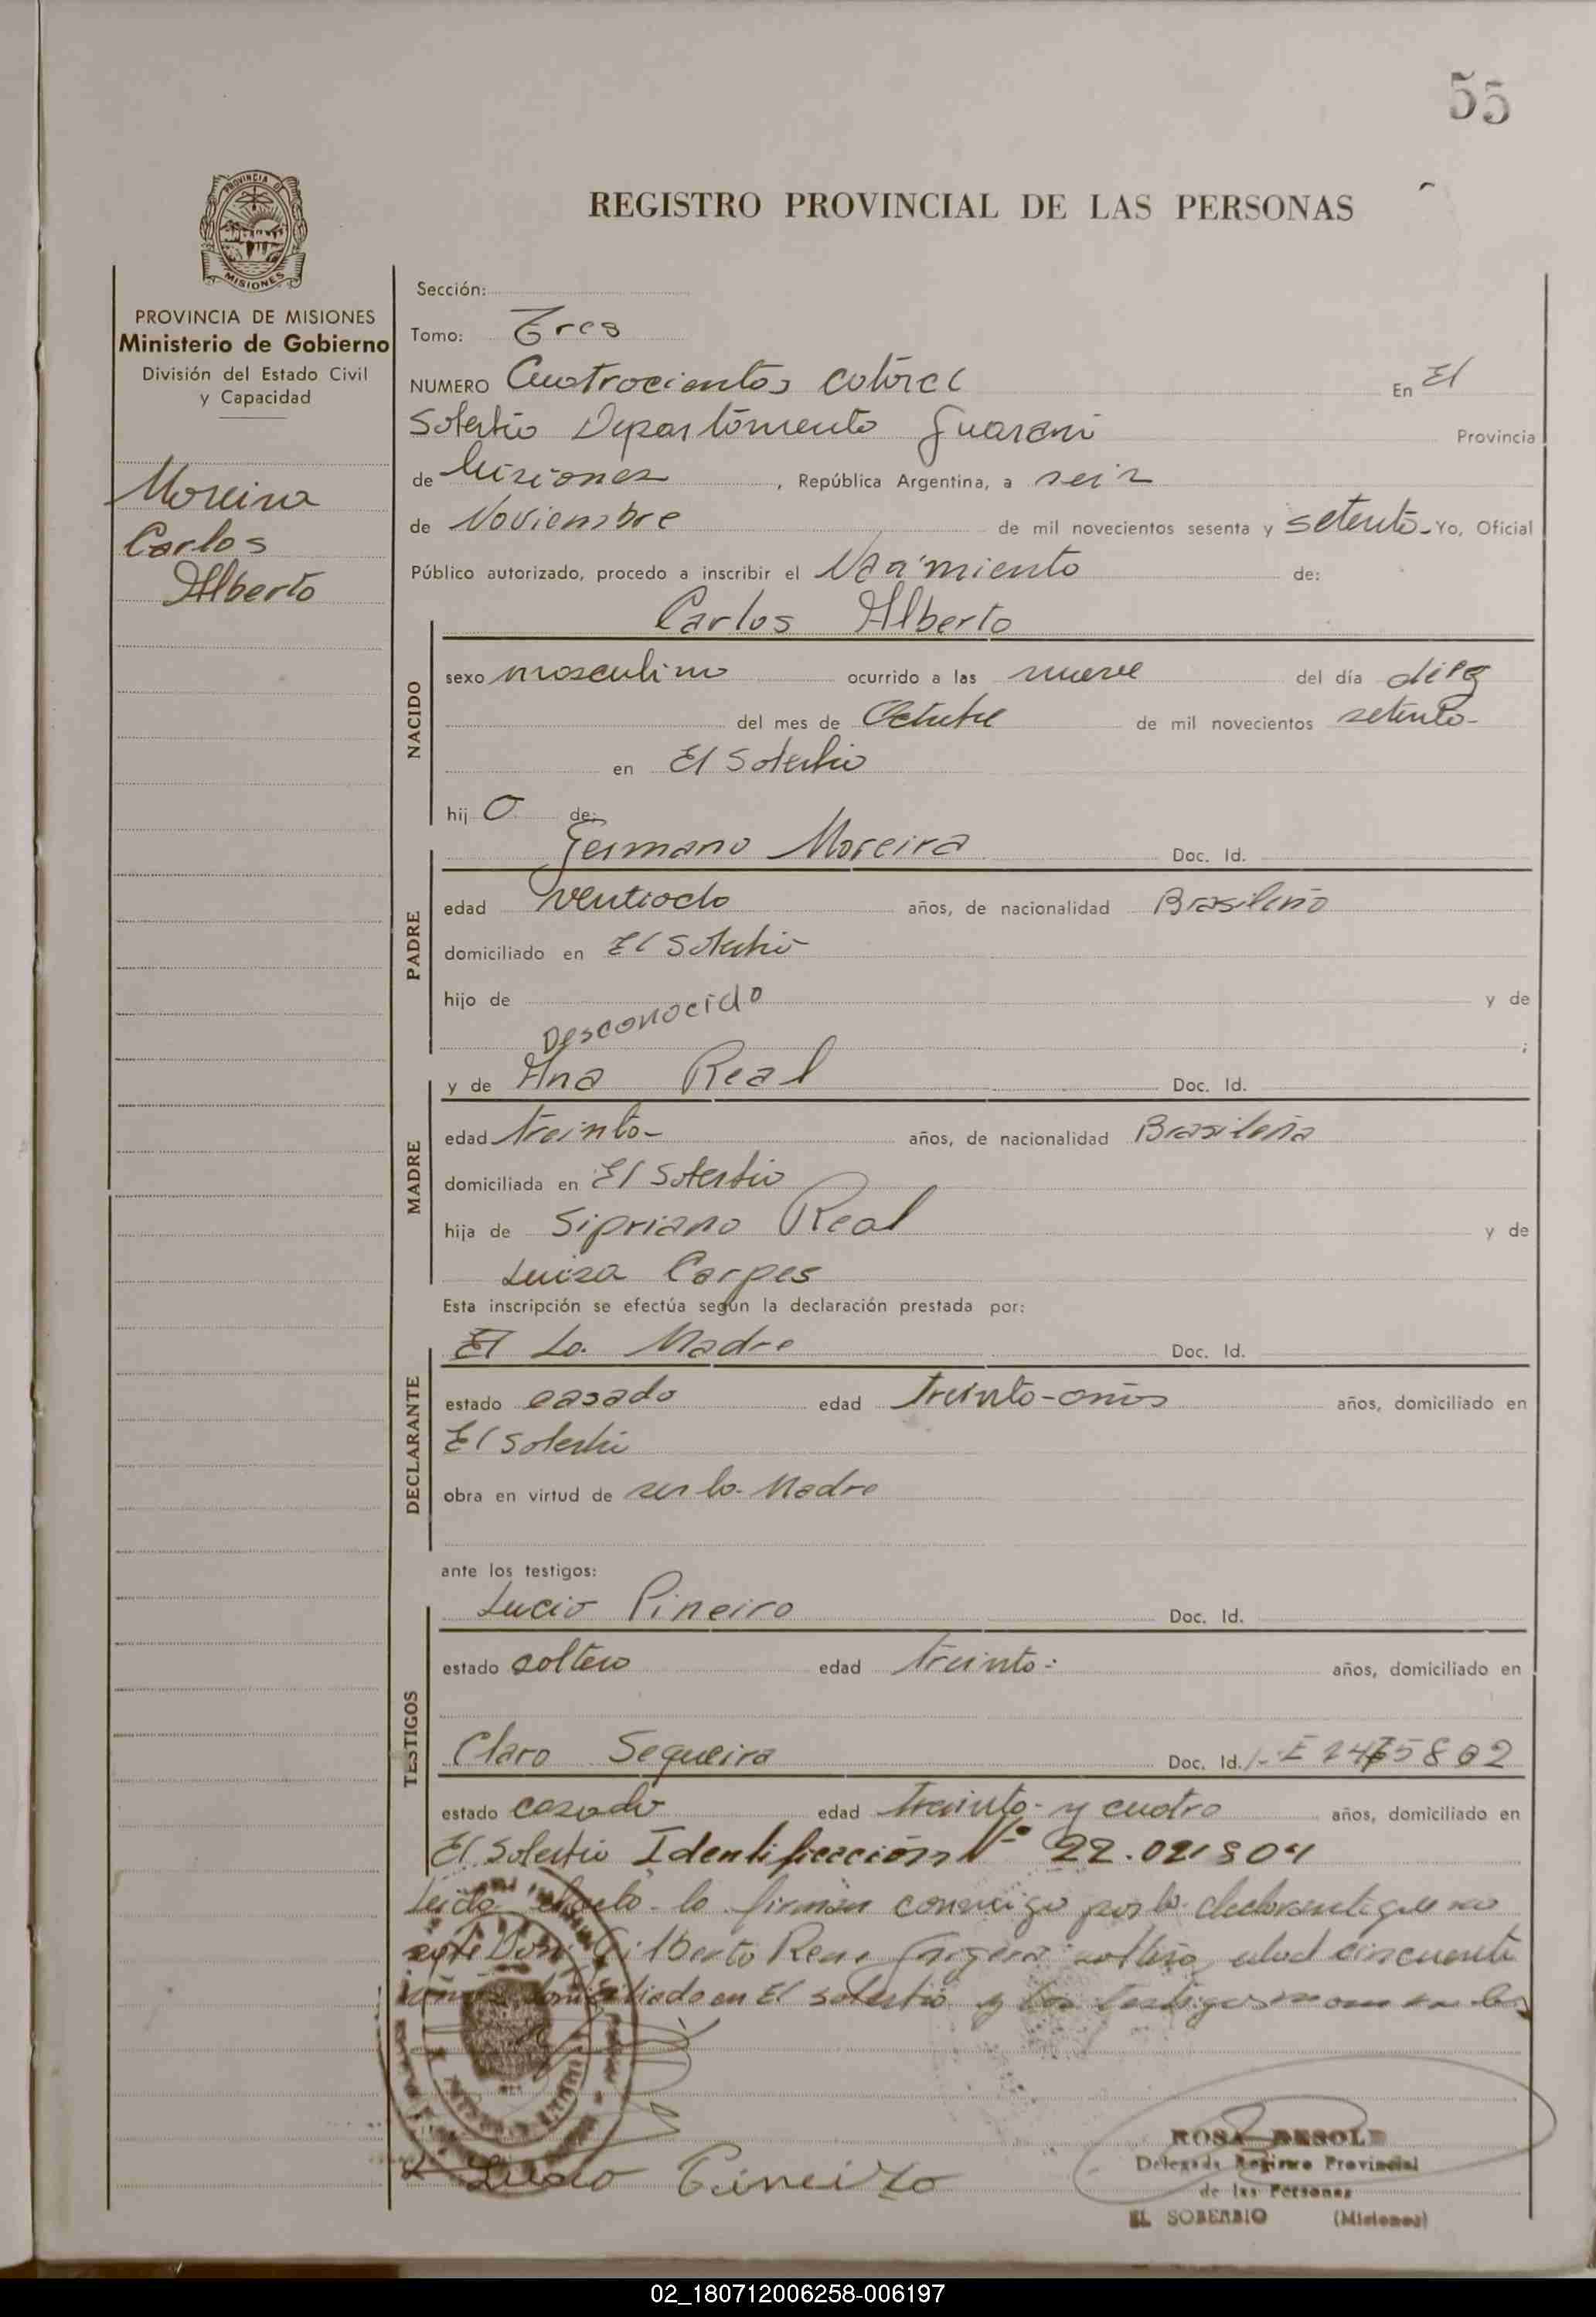 55
REGISTRO PROVINCIAL DE LAS PERSONAS
PROVINCIA DE
MISIONES
PROVINCIA DE MISIONES
Ministerio de Gobierno
División del Estado Civil
y Capacidad
Moreira
Carlos
Alberto
Sección:
Tomo: Tres
NUMERO Cuatrocientos catorce En El
Soberbio Departamento Guarani Provincia
de Misiones, República Argentina, a seis
de Noviembre de mil novecientos sesenta y setenta- Yo, Oficial
Público autorizado, procedo a inscribir el Nacimiento de:
Carlos Alberto
NACIDO
sexo masculino ocurrido a las nueve del día diez
del mes de Octubre de mil novecientos setenta-
en El Soberbio
hij o de:
PADRE
Germano Moreira Doc. Id.
edad ventiocho años, de nacionalidad Brasileño
domiciliado en El Soberbio
hijo de y de
Desconocido ;
MADRE
y de Ana Real Doc. Id.
edad treinta- años, de nacionalidad Brasileña
domiciliada en El Soberbio
hija de Sipriano Real y de
Luisa Carpes
Esta inscripción se efectúa según la declaración prestada por:
DECLARANTE
El La Madre Doc. Id.
estado casada edad treinta-años años, domiciliado en
El Soberbio
obra en virtud de ser la Madre
ante los testigos:
TESTIGOS
Lucio Pineiro Doc. Id.
estado soltero edad treinta- años, domiciliado en
Claro Sequeira Doc. Id.
estado casado edad treinta- y cuatro años, domiciliado en
El Soberbio Identificación Nº 22.021804
Leida el acta la firman conmigo por la declarante que no
Don Gilberto Rene soltero, edad cincuenta
años domiciliado en El Soberbio y los testigos
Lucio Pineiro
ROSA DESOLE
Delegada Registro Provincial
de las Personas
EL SOBERBIO (Misiones)
02_180712006258-006197